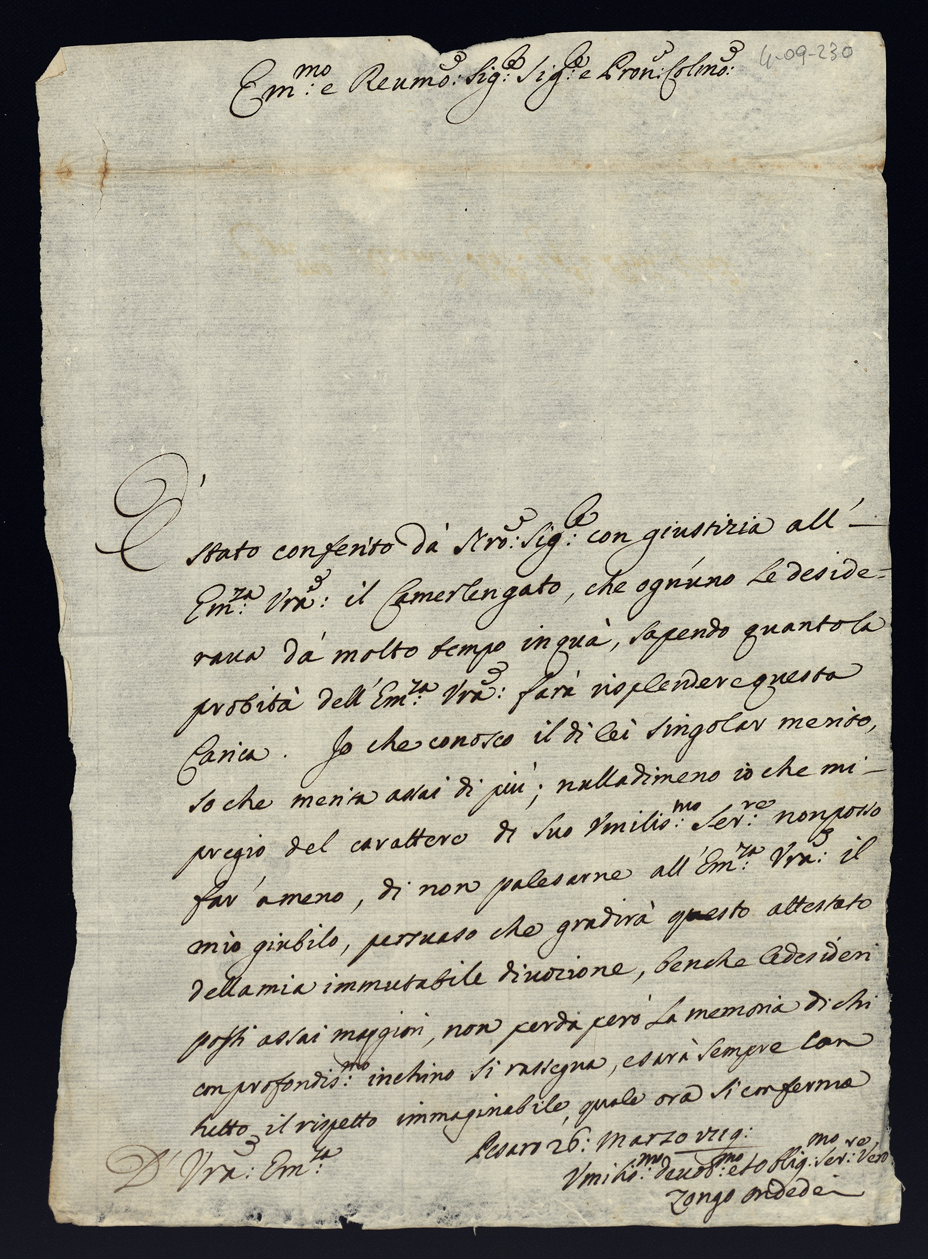 4-09-230
Em:mo e Reumo: Sig:re Sig:re e Pron: Colmo:
E' stato conferito dà Nro: Sig:re con giustizia all'–
Em:za Vra: il Camerlengato, che ogn'uno Le deside=
raua dà molto tempo in quà, sapendo quanto la
probità dell'Em:za Vra: farà risplendere questa
Carica. Io che conosco il di lei singolar merito,
so che merita assai di più; nulladimeno io che mi –
pregio del carattere di suo Vmilis:mo Ser:re non posso
far' ameno, di non palesarne all'Em:za Vra: il
mio giubilo, persuaso che gradirà questo attestato
della mia immutabile diuozione, benche Le desideri
posti assai maggiori, non perda però La memoria di chi
con profondis:mo inchino si rassegna, e sarà sempre con
tutto il rispetto immaginabile, quale ora si conferma
D' Vra: Em:za
Pesaro 26: Marzo 1719:
Vmilis:mo deuo:mo et obblig:mo Ser:re Vero
Zongo Ondedei